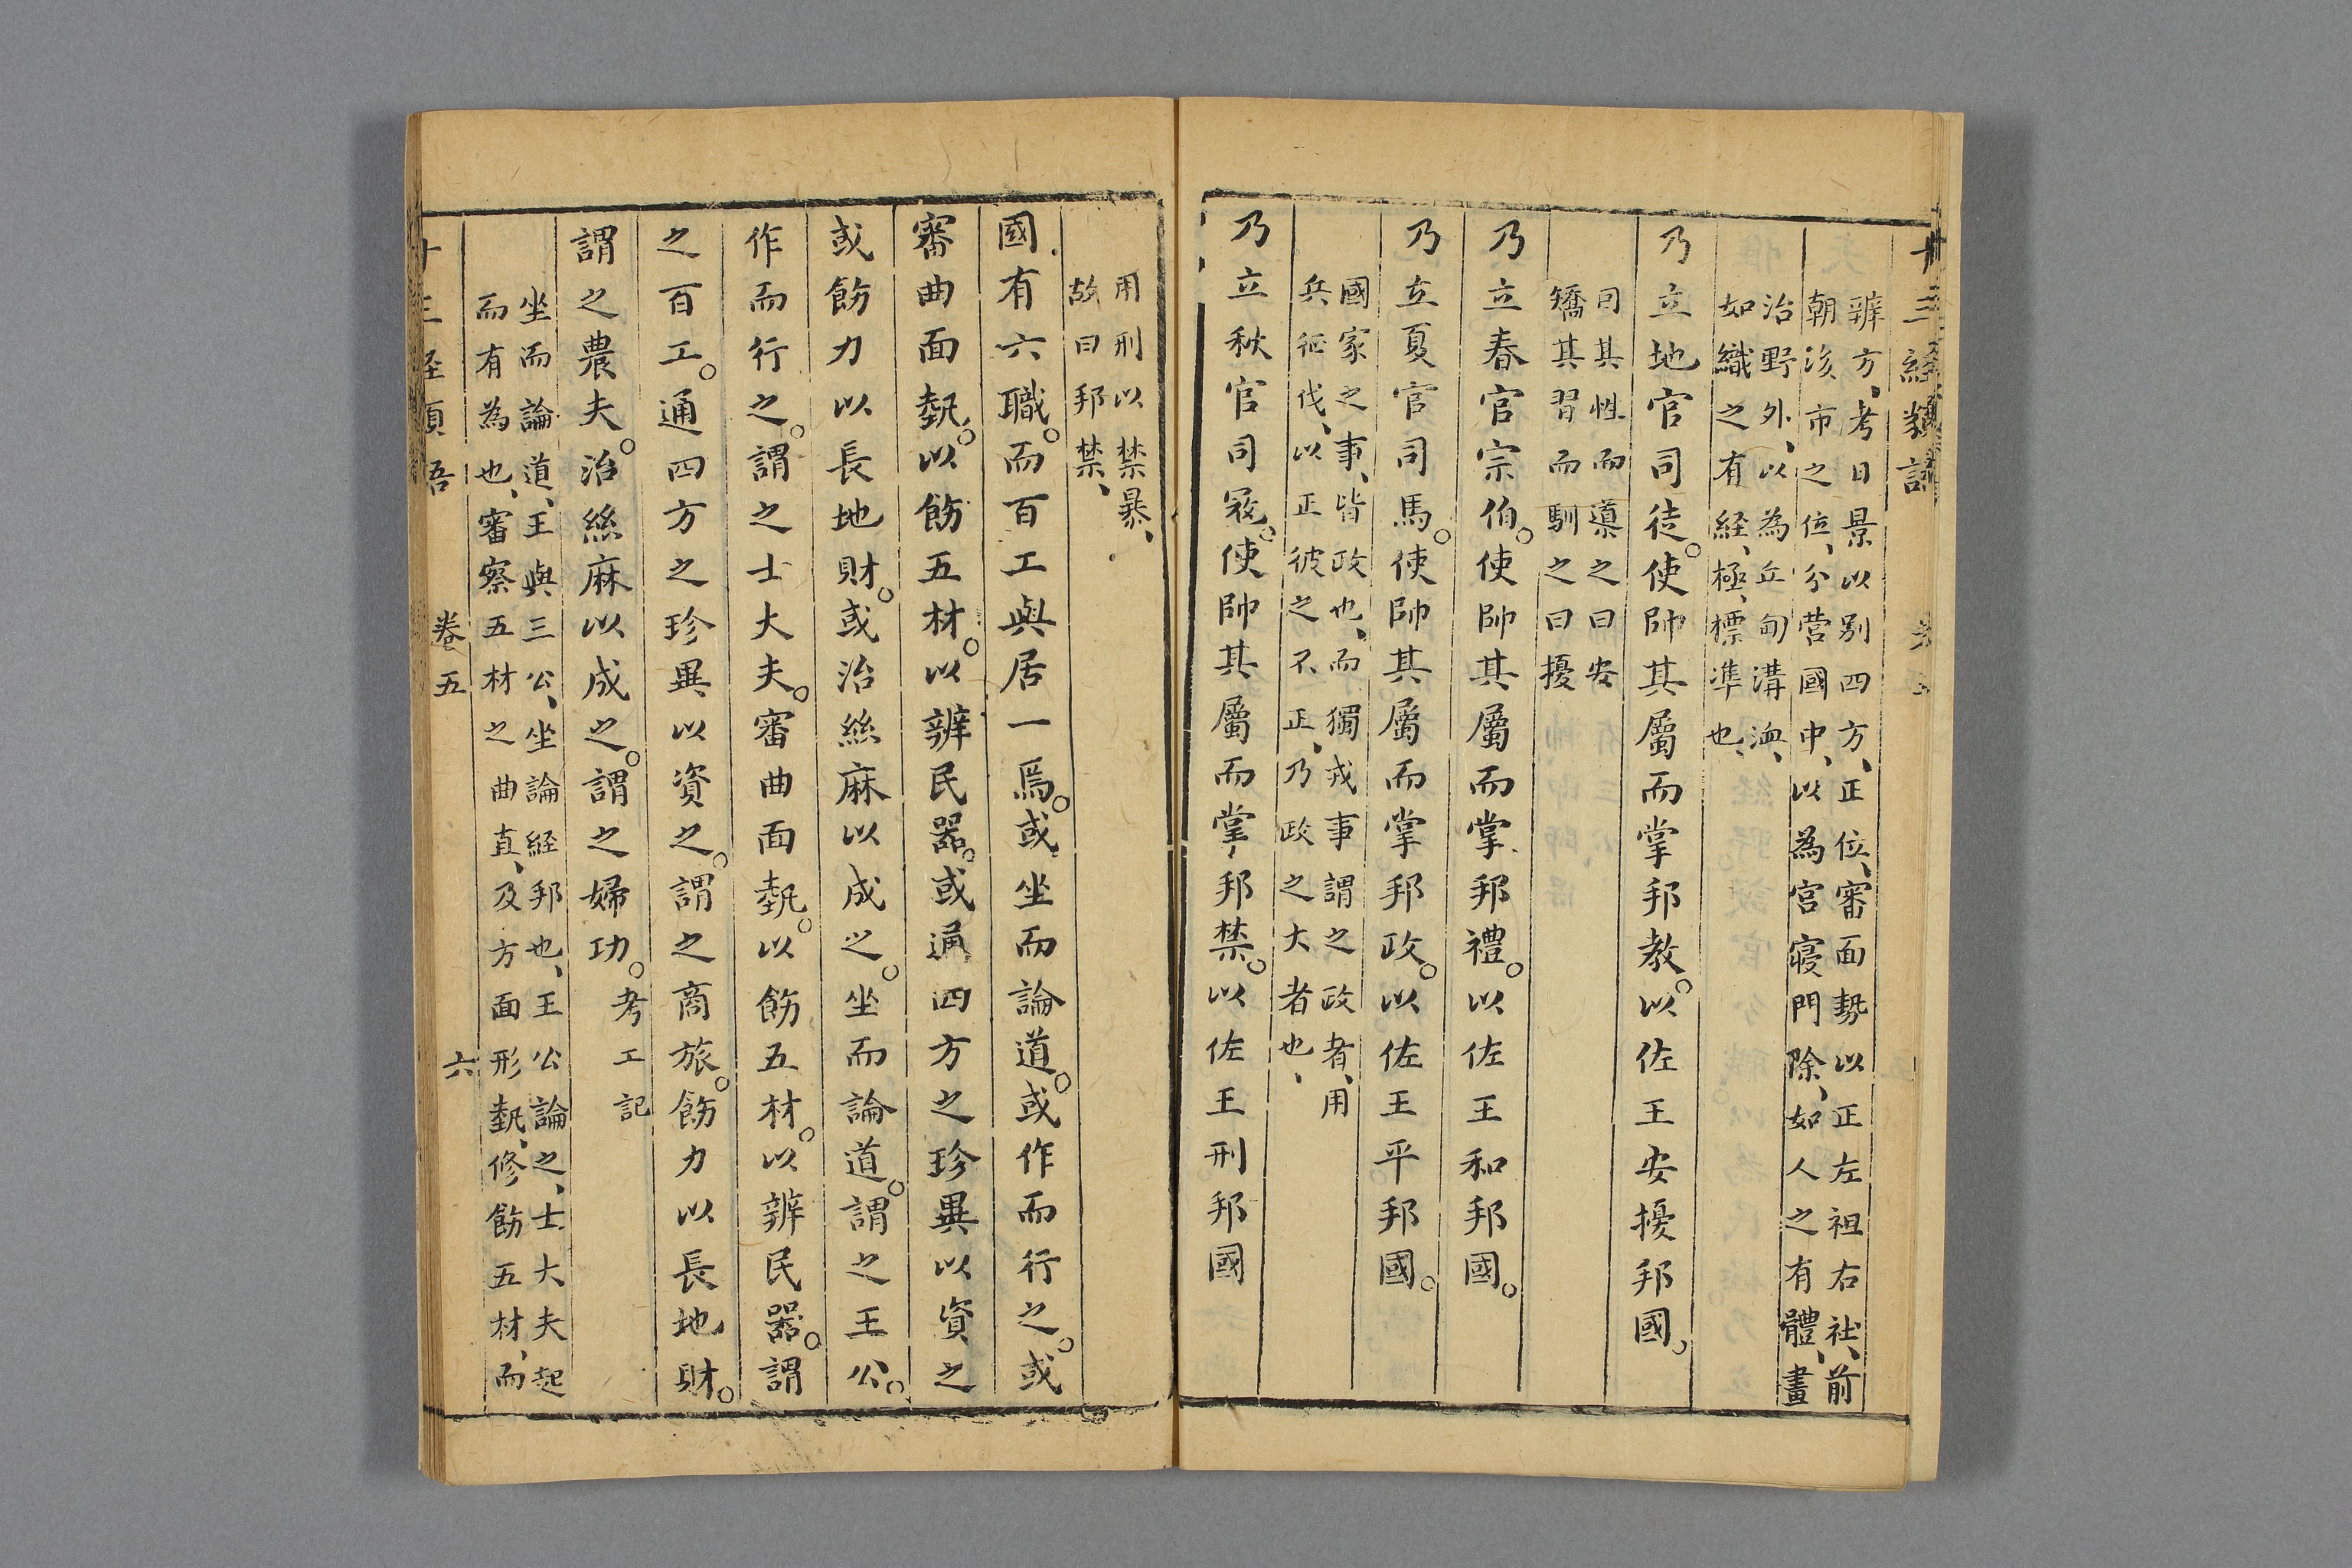 十三經類語
辨方、考日景以别四方、正位、審面勢以正左祖右社、前
朝後市之位、分營國中、以為宮寢門除、如人之有體、畫
治野外、以為丘甸溝洫、
如織之有経、極、標準也、
乃立地官司徒。使帥其屬而掌邦教。以佐王安擾邦國。
因其性而導之曰安
矯其習而馴之曰擾
乃立春官宗伯。使帥其屬而掌邦禮。以佐王和邦國。
乃立夏官司馬。使帥其屬而掌邦政。以佐王平邦國。
國家之事、皆政也、而獨戎事謂之政者、用
兵征伐、以正彼之不正、乃政之大者也、
乃立秋官司冦。使帥其屬而掌邦禁。以佐王刑邦國
用刑以禁暴、
故曰邦禁、
國有六職。而百工與居一焉。或坐而論道。或作而行之。或
審曲面埶。以飭五材。以辨民器。或通四方之珍異以資之
或飭力以長地財。或治絲麻以成之。坐而論道。謂之王公。
作而行之。謂之士大夫。審曲面埶。以飭五材。以辨民器。謂
之百工。通四方之珍異以資之。謂之商旅。飭力以長地財。
謂之農夫。治絲麻以成之。謂之婦功。考工記
坐而論道、王與三公、坐論経邦也、王公論之、士大夫起
而有為也、審察五材之曲直、及方面形埶、修飭五材、而
十三経類語 卷五 六